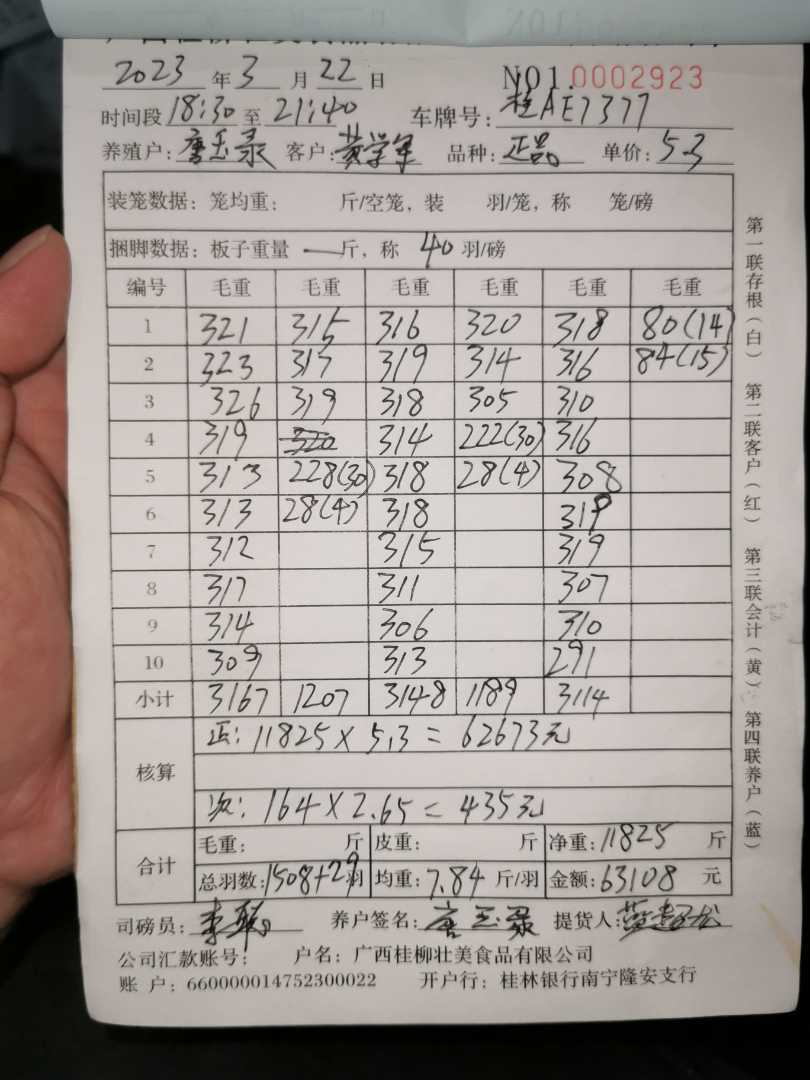 2023 年 3 月 22 日 NO1.0002923
时间段 18:30 至 21:40 车牌号: 桂AE7377
养殖户: 唐玉录 客户: 黄学军 品种: 正品 单价: 5.3
装笼数据: 笼均重: 斤/空笼, 装 羽/笼, 称 笼/磅
捆脚数据: 板子重量 — 斤, 称 40 羽/磅
编号 毛重 毛重 毛重 毛重 毛重 毛重
1 321 315 316 320 318 80(14)
2 323 317 319 314 316 84(15)
3 326 319 318 305 310
4 319 320 314 222(30) 316
5 313 228(30) 318 28(4) 308
6 313 28(4) 318 319
7 312 315 319
8 317 311 307
9 314 306 310
10 309 313 291
小计 3167 1207 3148 1189 3114
核算
正: 11825 × 5.3 = 62673元
次: 164 × 2.65 = 435元
合计
毛重: 斤 皮重: 斤 净重: 11825 斤
总羽数: 1508+29 羽 均重: 7.84 斤/羽 金额: 63108 元
司磅员: 养户签名: 唐玉录 提货人:
公司汇款账号: 户名: 广西桂柳壮美食品有限公司
账 户: 660000014752300022 开户行: 桂林银行南宁隆安支行
第一联存根(白) 第二联客户(红) 第三联会计(黄) 第四联养户(蓝)